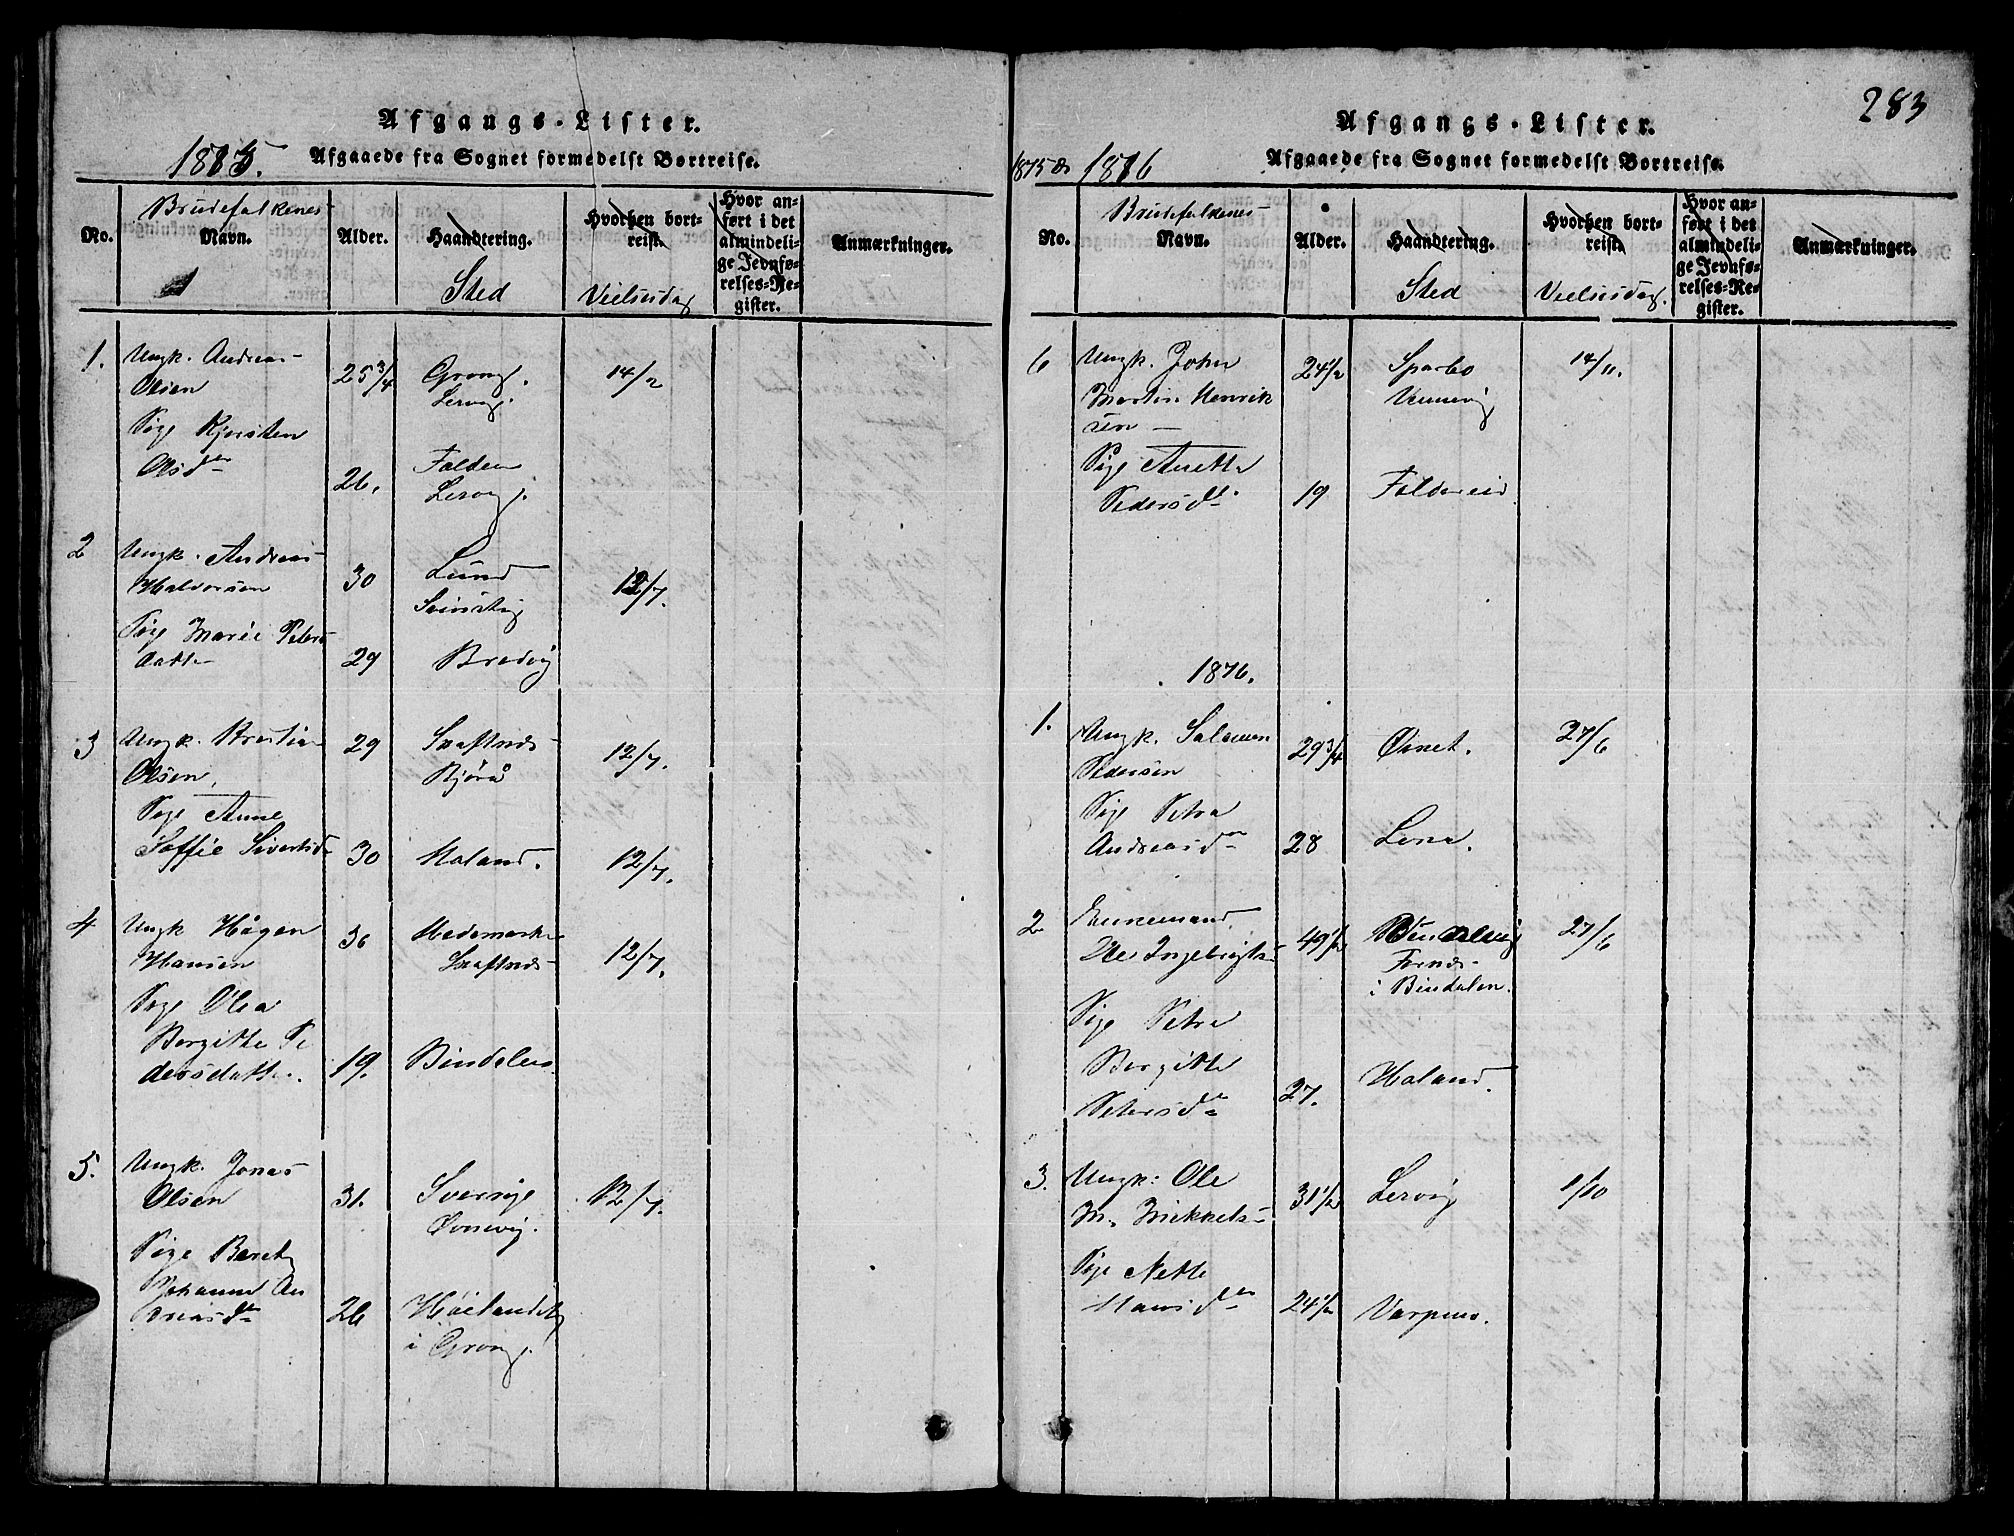 Afgangs-Lister.
1875.
Afgaaede fra Sognet formedelst Bortreise.
No.
Brudefolkenes
Navn.
Alder.
Haandtering.
Sted
Hvorhen bort-
reist.
Vielsesdag
Hvor an-
ført i det
almindeli-
ge Jevnfø-
relses-Re-
gister.
Anmærkninger.
1. Ungk. Andreas
Olsen
25 3/4
Grong.
Lervig.
14/2
Pige Kjersten
Olsdtr
26.
Folden
Lervig.
2 Ungk. Andreas
Halvorsen
30
Lund
12/7.
Pige Marie Peters
datter
29
Bredvig
3 Ungk. Kristian
Olsen,
29
Skafnes
Kjørå
12/7.
Pige Anne
Soffie Sivertsd
30
Haland.
12/7.
4 Ungk Hågen
Hansen
36
Hedemarken
Skafnes
12/7.
Pige Olea
Bergitte Pe
dersdatter.
19.
Bindalen
5. Ungk. Jonas
Olsen
31.
Sverrige
12/7.
Pige Beret
Johanna An
dreasdtr
26
Høilandet
i Grong.
283
Afgangs-Lister.
1875 &
1876
Afgaaede fra Sognet formedelst Bortreise.
No.
Brudefolkenes
Navn.
Alder.
Haandtering.
Sted
Hvorhen bort-
reist.
Vielsesdag.
Hvor an-
ført i det
almindeli-
ge Jevnfø-
relses-Re-
gister.
Anmærkninger.
6 Ungk. John
Martin Henrik
sen
24 1/2
Sparbo
Vennevig
14/11.
Pige Anette
Pedersdtr
19
Foldereid
1876.
1. Ungk. Salamon
Pedersen
29 3/4
Ørnet.
27/6
Pige Petra
Andreasdtr
28
Lona.
2 Enkemand
Ole Ingebrigts
49 1/2
Fornes
i Bindalen.
27/6
Pige Petra
Bergitte
Petersdtr
27.
Haland.
3. Ungk: Ole
M. Mikkels
31 1/2
Lervig
1/10
Pige Nette
Hansdtr
24 1/2
Varpmo.